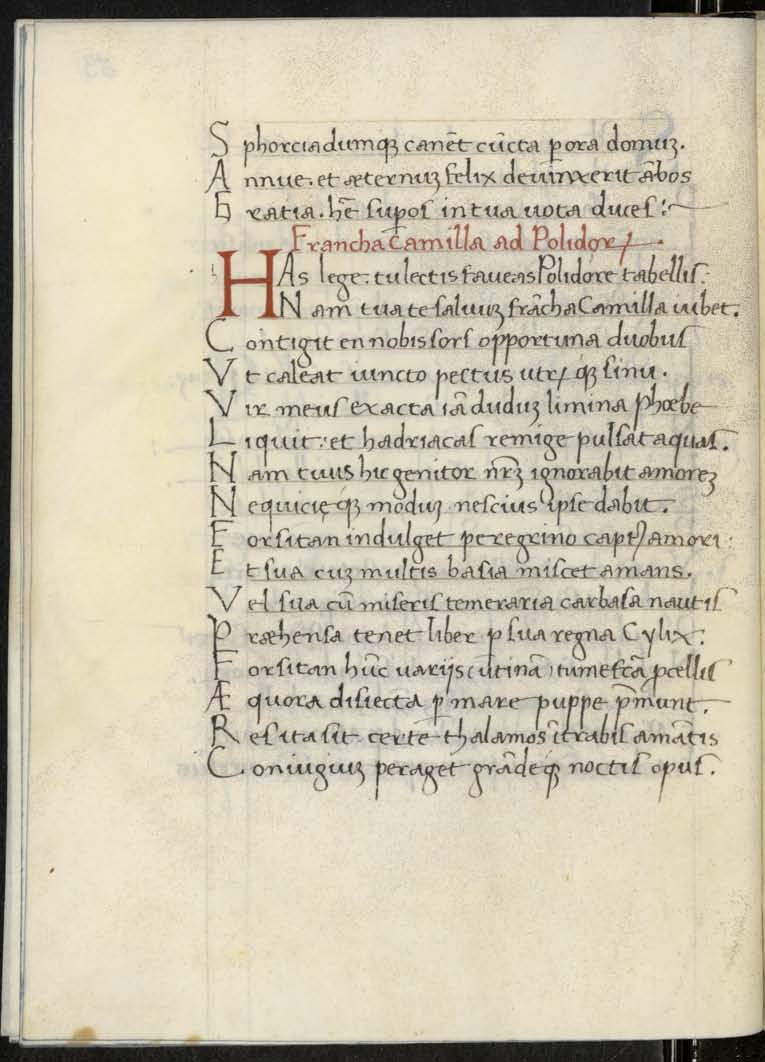 S phorciadumqꝫ canēt cūcta ꝑ ora domuꝫ.
A nnue. et æternuꝫ felix deuinxerit ābos
G ratia. hē suꝑos in tua uota duces:~
Francha Camilla ad Polidorꝝ.
HAs lege: tu lectis faueas Polidore tabellis:
N am tua te saluuꝫ frācha Camilla iubet.
C ontigit en nobis sors opportuna duobus
V t caleat iuncto pectus utrꝝqꝫ sinu.
V ir meus exacta iā duduꝫ limina phœbe
L iquit: et hadriacas remige pulsat aquas.
N am tuus hic genitor nr̄ꝫ ignorabit amoreꝫ
N equicięqꝫ moduꝫ nescius ipse dabit.
F orsitan indulget peregrino captꝰ amori:
E t sua cuꝫ multis basia miscet amans.
V el sua cū miseris temeraria carbasa nautis
P ræhensa tenet liber ꝓ sua regna Cylix:
F orsitan hūc uarijs (utinā) tumefcā ꝓcellis
Æ quora disiecta ꝑ mare puppe p̄munt.
R es ita sit certe thalamos ītrabis amātis
C oniugiuꝫ peraget grādeqꝫ noctis opus.